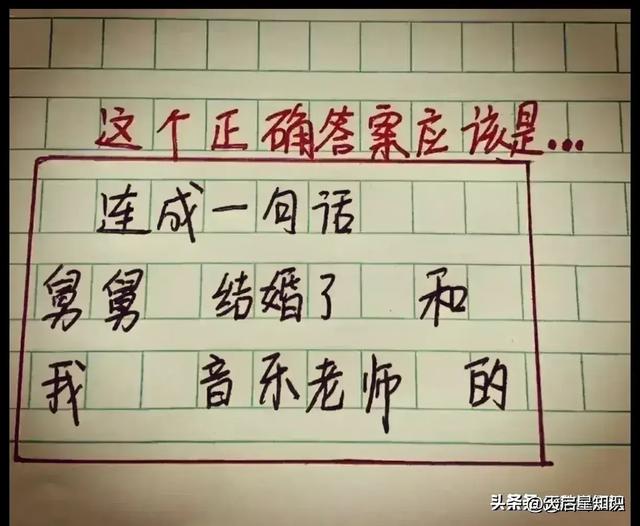 这个正确答案应该是...
连成一句话
舅舅 结婚了 和
我 音乐老师 的
头条 @天启星知识